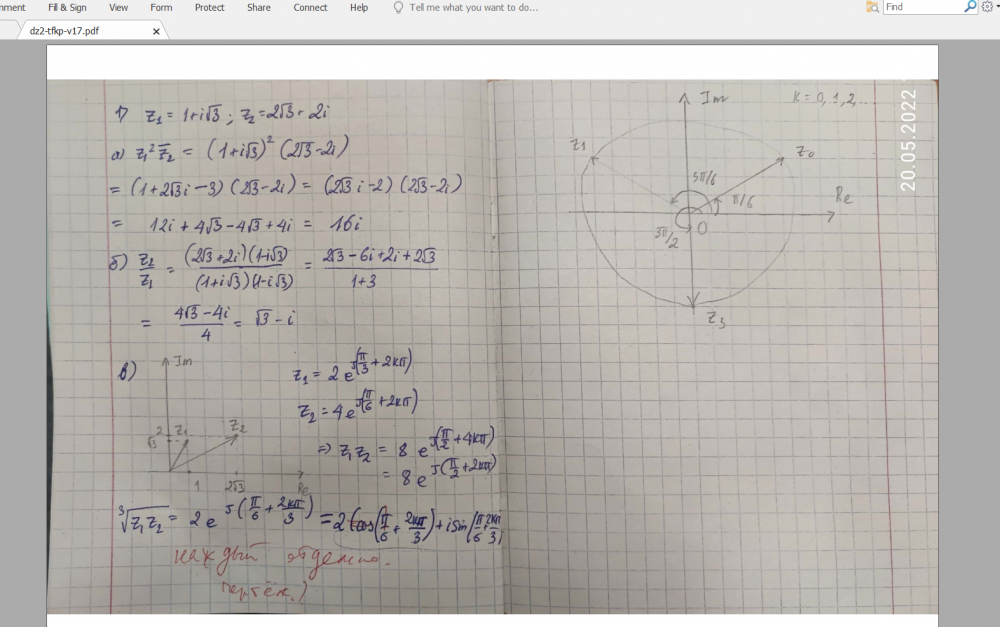 nment Fill & Sign View Form Protect Share Connect Help Tell me what you want to do... Find
dz2-tfkp-v17.pdf ×
1) z₁ = 1+i√3 ; z₂ = 2√3 + 2i
a) z₁² z̄₂ = (1+i√3)² (2√3-2i)
= (1+2√3i-3) (2√3-2i) = (2√3i-2) (2√3-2i)
= 12i + 4√3 - 4√3 + 4i = 16i
б) z₂/z₁ = (2√3+2i)(1-i√3)/(1+i√3)(1-i√3) = 2√3-6i+2i+2√3/1+3
= 4√3-4i/4 = √3-i
в) Im
z₁ = 2e^J(π/3+2кπ)
z₂ = 4e^J(π/6+2кπ)
⇒ z₁z₂ = 8e^J(π/2+4кπ)
= 8e^J(π/2+2кπ)
2 √3 z₁ z₂
1 2√3 Re
³√z₁z₂ = 2e^J(π/6+2кπ/3) = 2(cos(π/6+2кπ/3)+i sin(π/6+2кπ/3)
каждый отдельно.
чертёж.)
Im K = 0, 1, 2, ...
z₁ z₀
5π/6
π/6 Re
3π/2 0
z₃
20.05.2022